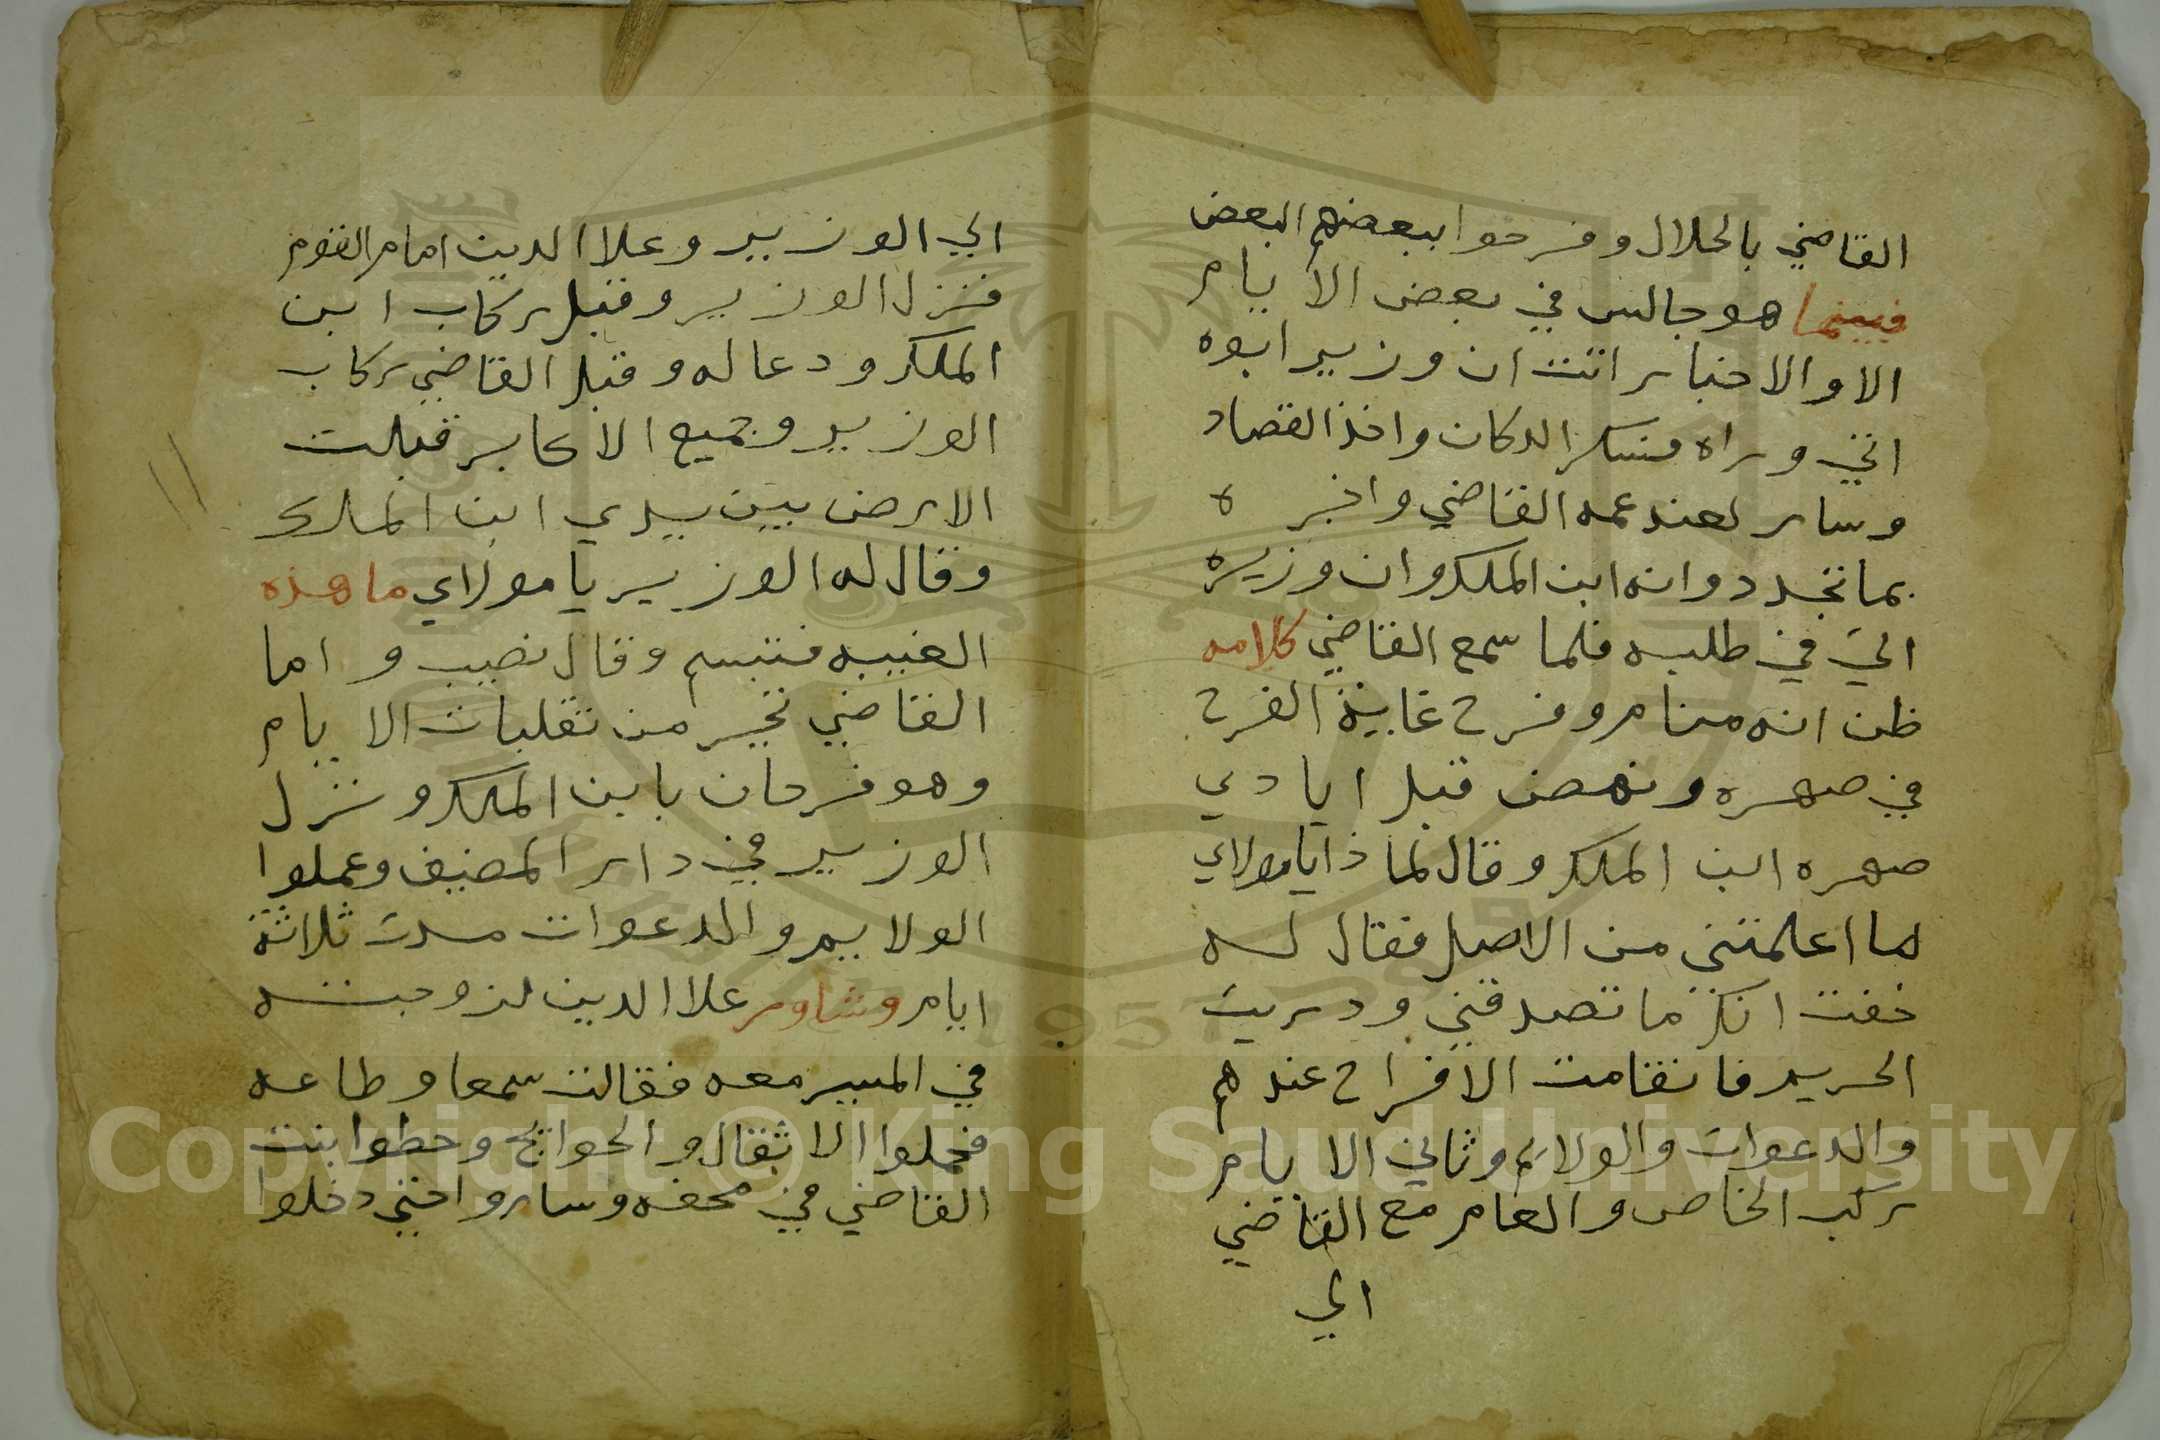 القاضي بالحلال وفرحوا ببعضهم البعض
فبينما هو جالس في بعض الايام
الا والاخبار اتت ان وزير ابوه
اتي وراه فسكر الدكان واخذ القصاد
وسار لعند عمه القاضي واخبره
بما تجدد وانه ابن الملك وان وزيره
اليَ في طلبه فلما سمع القاضي كلامه
ظن انه منام وفرح غاية الفرح
في صهره ونهض قبل ايادي
صهره ابن الملك وقال لماذا يا مولاي
لما اعلمتني من الاصل فقال له
خفت انك ما تصدقني ودريت
الحريم فانقامت الافراح عندهم
والدعوات والولايم وثاني الايام
ركب الخاص والعام مع القاضي
الي
الي الوزير وعلا الدين امام القوم
فنزل الوزير وقبل ركاب ابن
الملك ودعا له وقبل القاضي ركاب
الوزير وجميع الاكابر قبلت
الارض بين يدي ابن الملك
وقال له الوزير يا مولاي ما هذه
الغيبه فتبسم وقال نصيب واما
القاضي تحير من تقلبات الايام
وهو فرحان بابن الملك ونزل
الوزير في دار المضيف وعملوا
الولايم والدعوات مدت ثلاثة
ايام وشاور علا الدين لزوجته
في المسير معه فقالت سمعا وطاعه
فحملوا الاثقال والحوائج وحطوا بنت
القاضي في محفه وساروا حتي دخلوا
Copyright © King Saud University
1957